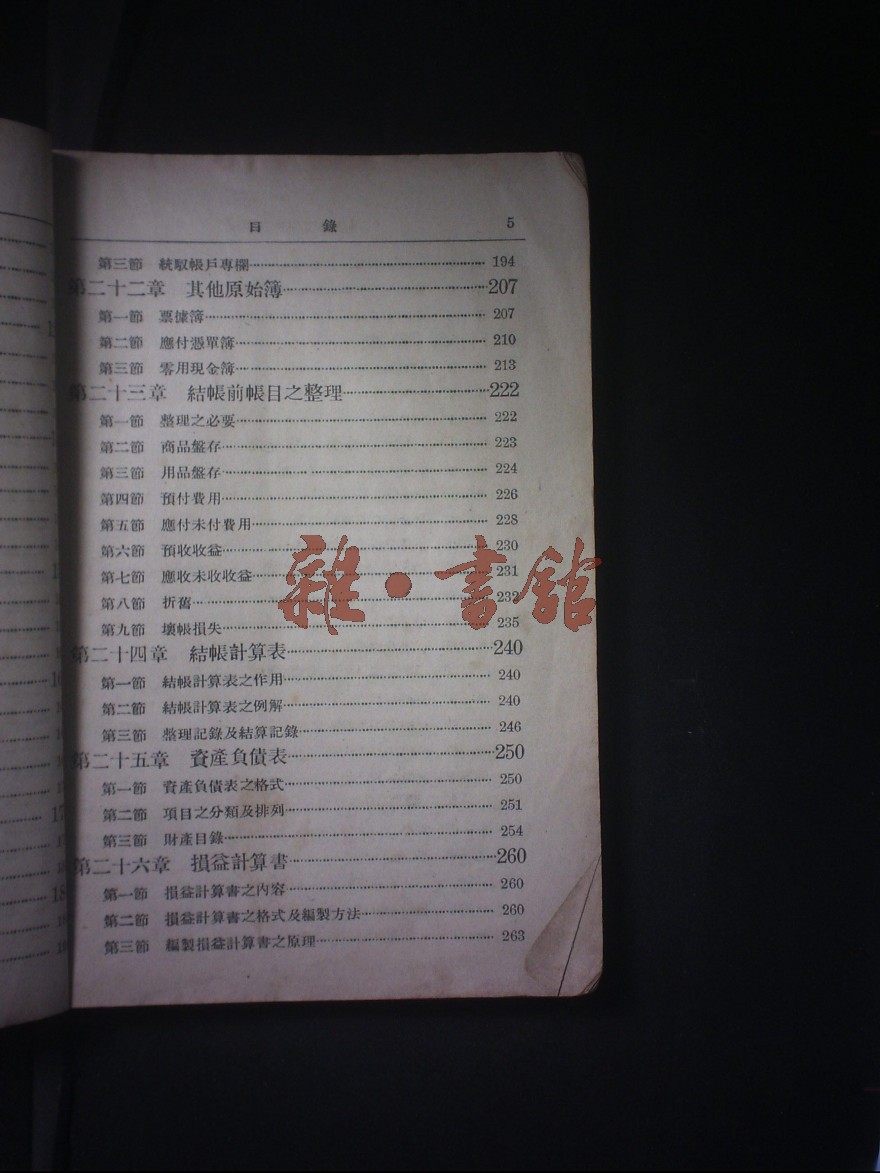 目錄 5
第三節 統馭帳戶專欄 194
第二十二章 其他原始簿 207
第一節 票據簿 207
第二節 應付憑單簿 210
第三節 零用現金簿 213
第二十三章 結帳前帳目之整理 222
第一節 整理之必要 222
第二節 商品盤存 223
第三節 用品盤存 224
第四節 預付費用 226
第五節 應付未付費用 228
第六節 預收收益 230
第七節 應收未收收益 231
第八節 折舊 232
第九節 壞帳損失 235
第二十四章 結帳計算表 240
第一節 結帳計算表之作用 240
第二節 結帳計算表之例解 240
第三節 整理記錄及結算記錄 246
第二十五章 資產負債表 250
第一節 資產負債表之格式 250
第二節 項目之分類及排列 251
第三節 財產目錄 254
第二十六章 損益計算書 260
第一節 損益計算書之內容 260
第二節 損益計算書之格式及編製方法 260
第三節 編製損益計算書之原理 263
雜·書館